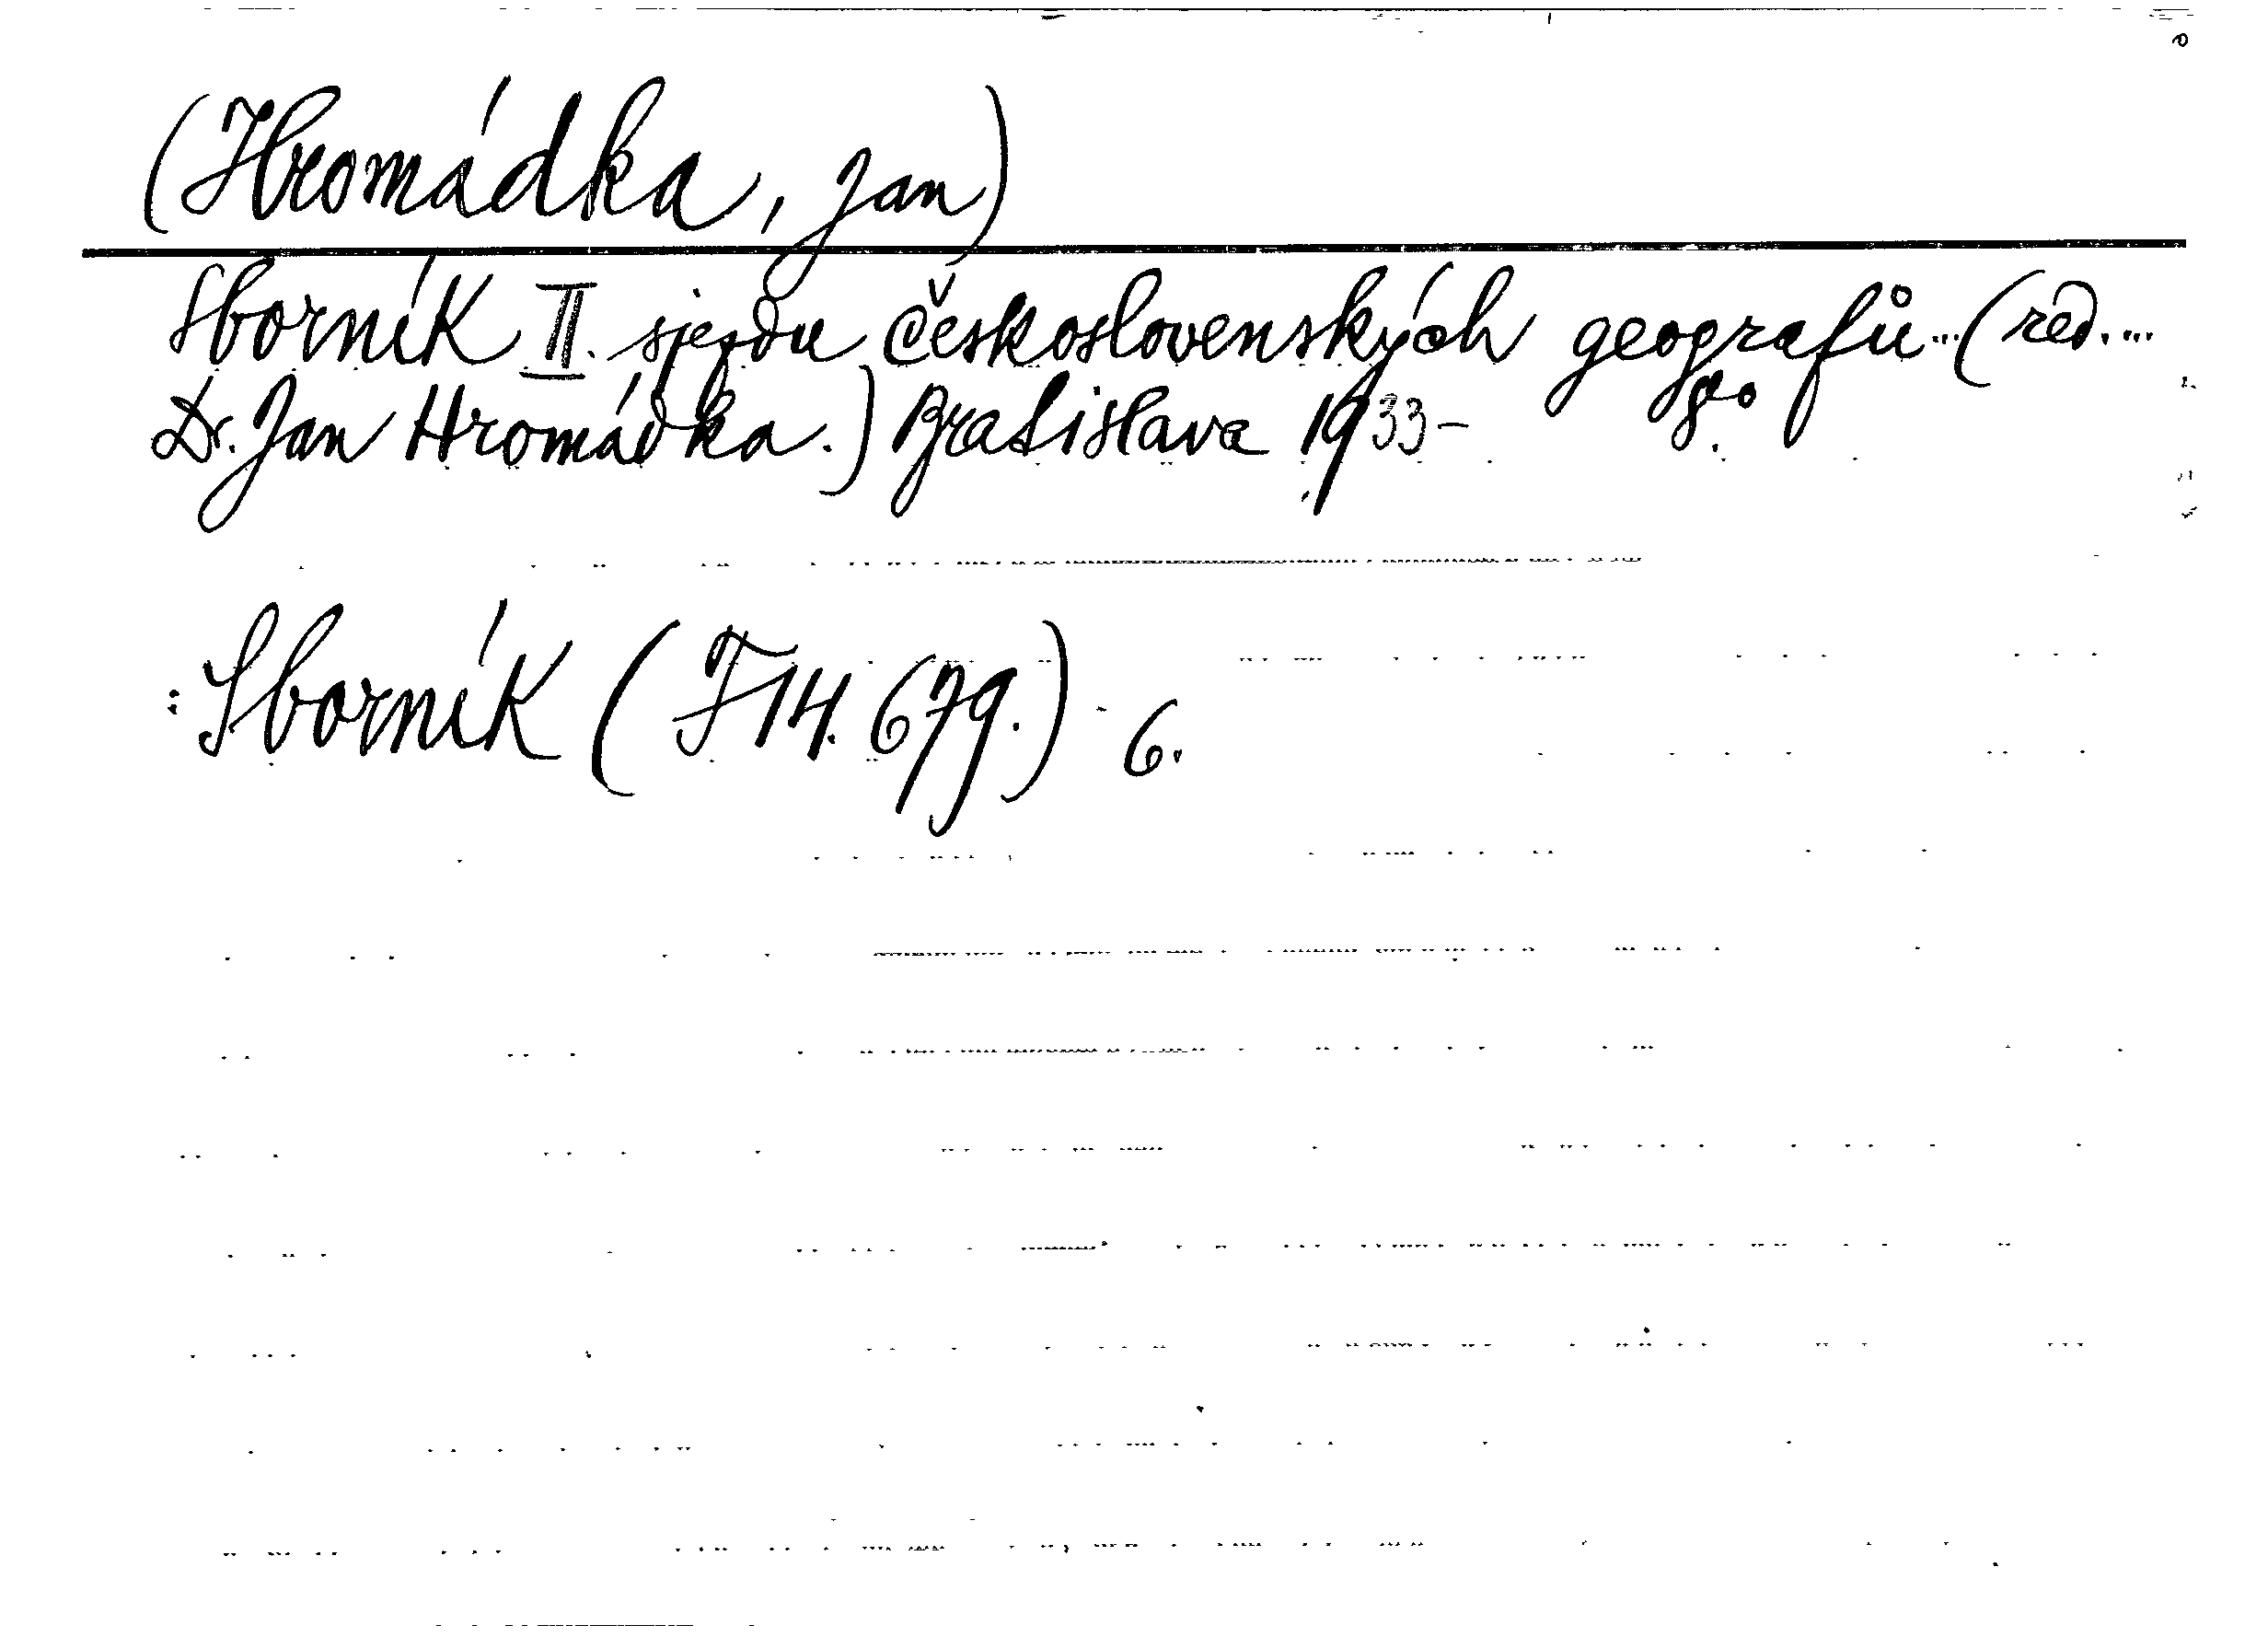 (Hromádka, Jan)
Sborník II. sjezdu československých geografů...(red....
Dr. Jan Hromádka.) Bratislava 1933- 8°.
:Sborník (F14.679.) 6.